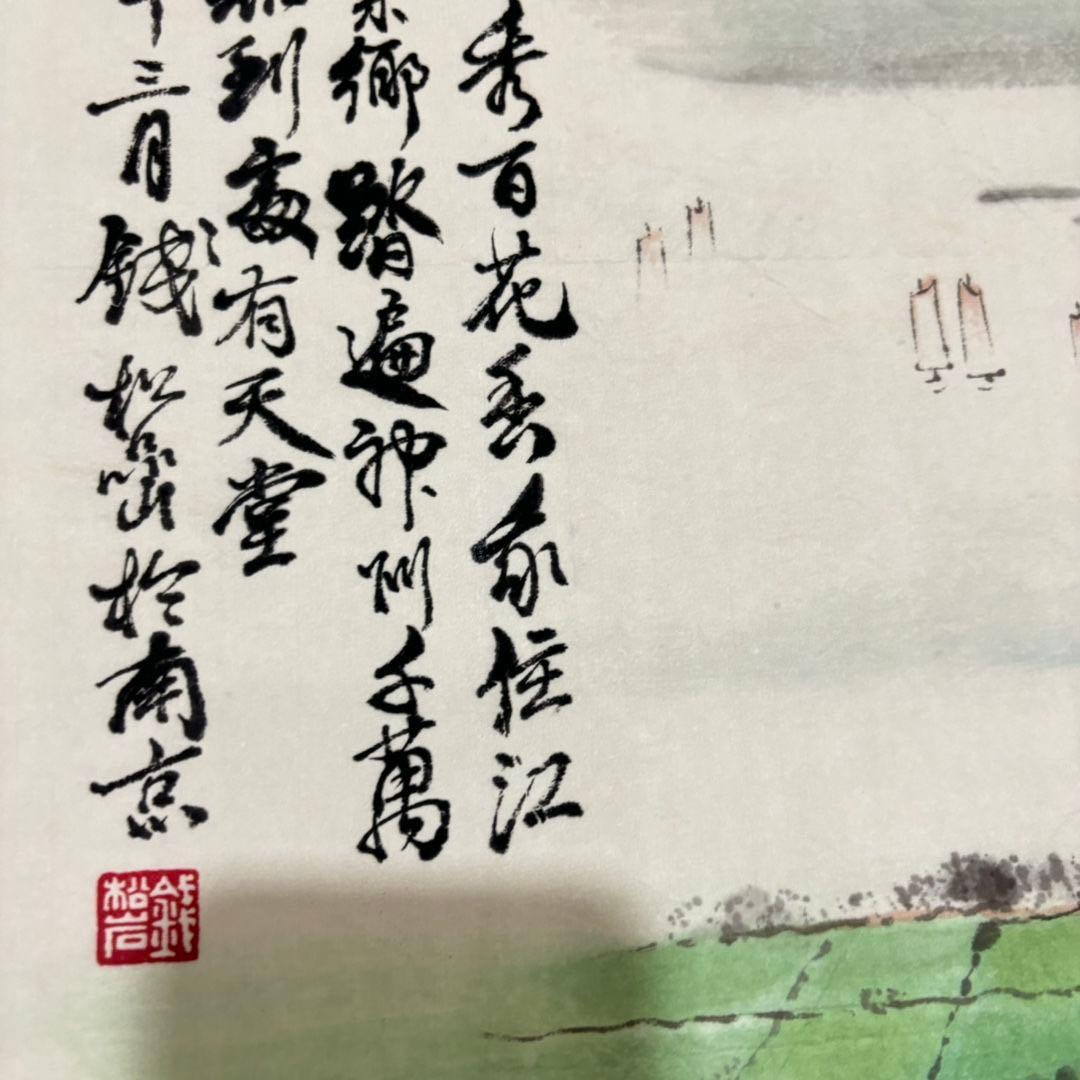 秀百花香家住江
鄉踏遍神州千萬
到處有天堂
年三月錢松嵒於南京
錢松岩